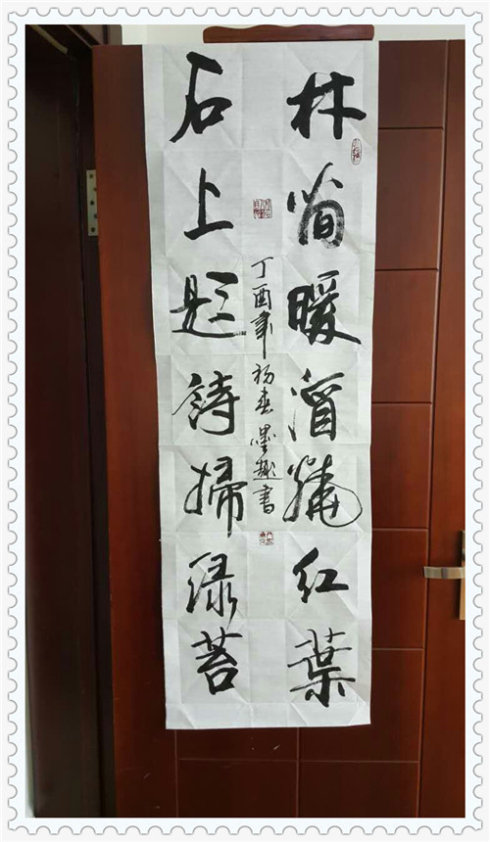 林间暖酒燒红葉
石上题詩掃绿苔
丁酉年初春墨趣書